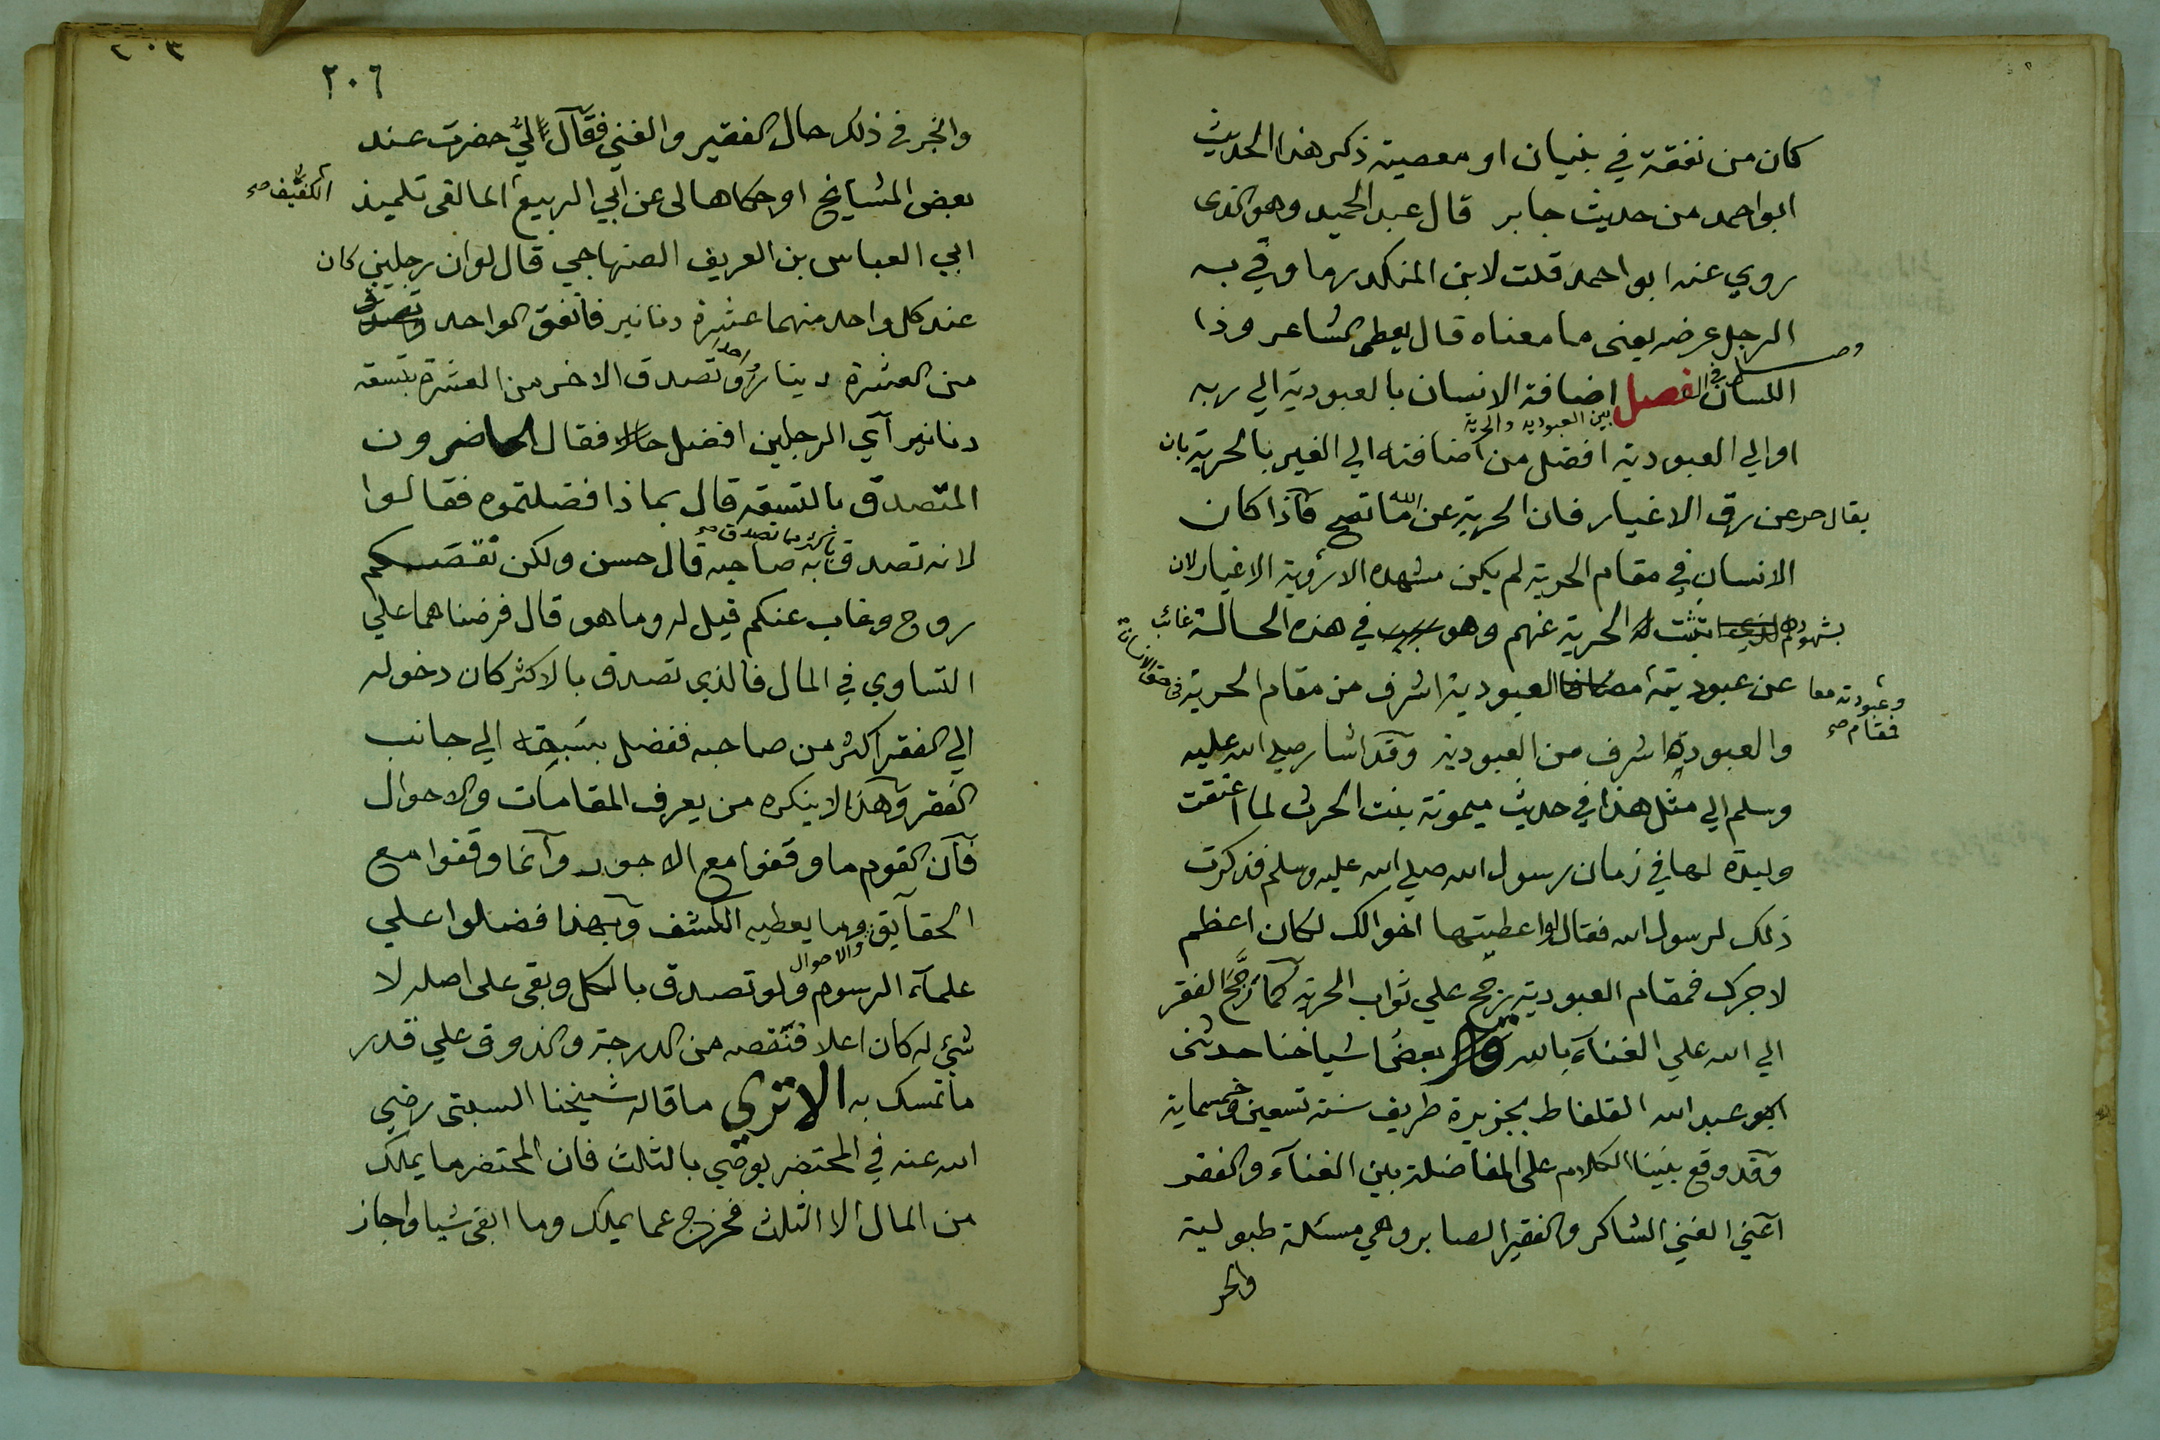 كان من نفقة في بنيان او معصية ذكر هذا الحديث
ابو احمد من حديث جابر قال عبد الحميد وهو الذى
روي عنه ابو احمد قلت لابن المنكدر ما وقي به
الرجل عرضه يعنى ما معناه قال يعطى الشاعر وذا
وصل
اللسان الفصل في اضافة الانسان بالعبودية الي ربه
بين العبوديه والحرية
او الي العبودية افضل من اضافته الي الغير بالحرية بان
يقال حر عن رق الاغيار فان الحرية عن الله ما تصح فاذا كان
الانسان في مقام الحرية لم يكن مشهده الا رؤية الاغيار لان
بشهودهم تثبت الحرية عنهم وهو في هذه الحالة غائب
عن عبوديته العبودية اشرف من مقام الحرية في حق الانسان
وعبودته معا
فمقام صح
والعبودة اشرف من العبودية وقد اشار صلي الله عليه
وسلم الي مثل هذا في حديث ميمونة بنت الحرث لما اعتقت
وليدة لها في زمان رسول الله صلي الله عليه وسلم فذكرت
ذلك لرسول الله فقال لو اعطيتها اخوالك لكان اعظم
لاجرك فمقام العبودية يرجح علي ثواب الحرية كما رجّح الفقر
الي الله علي الغناء بالله بعض اشياخنا حدثنى
ابو عبد الله القلفاط بجزيرة طريف سنة تسعين وخمسماية
وقد وقع بيننا الكلام على المفاضلة بين الغناء والفقر
اعني الغني الشاكر والفقير الصابر وهي مسئلة طبولية
وانجر
٢٠٦
٢٠٣
وانجر في ذلك حال الفقير والغني فقال لي حضرت عند
بعض المشايخ او حكاها لى عن ابي الربيع المالقى تلميذ
الكفيف صح
ابي العباس بن العريف الصنهاجي قال لو ان رجلين كان
عند كل واحد منهما عشرة دنانير فانفق الواحد وتصدق
من العشرة دينار واحد وتصدق الاخر من العشرة بتسعة
دنانير اي الرجلين افضل فقال الحاضرون
المتصدق بالتسعة قال بماذا فضلتموه فقالوا
لانه تصدق باكثر مما تصدق به صاحبه قال حسن ولكن نقصكم
روح وغاب عنكم قيل له وما هو قال فرضناهما علي
التساوي في المال فالذي تصدق بالاكثر كان دخوله
الي الفقر اكثر من صاحبه ففضل بسبقه الي جانب
الفقر وهذا لا ينكره من يعرف المقامات والاحوال
فان القوم ما وقفوا مع الاجور وانما وقفوا مع
الحقايق والاحوال وما يعطيه الكشف وبهذا فضلوا علي
علماء الرسوم ولو تصدق بالكل وبقى على اصله لا
شئ له كان اعلا فنقصه من الدرجة والذوق علي قدر
ما تمسك به الا ترى ما قاله شيخنا السبتى رضي
الله عنه في المحتضر يوصي بالثلث فان المحتضر ما يملك
من المال الا الثلث فخرج عما يملك وما ابقى شيا واجاز